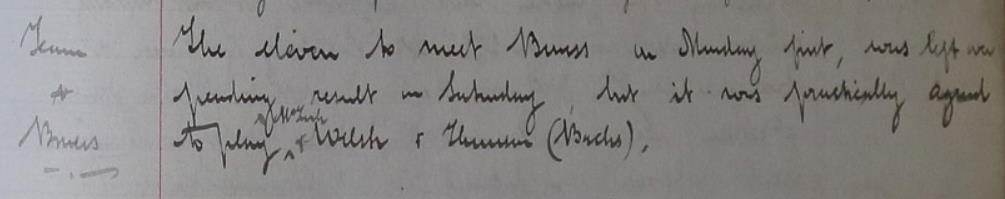 Team
The eleven to meet Burness on Monday first, was left over
pending result on Saturday, but it was practically agreed
to play Welsh & Thomson (Backs).